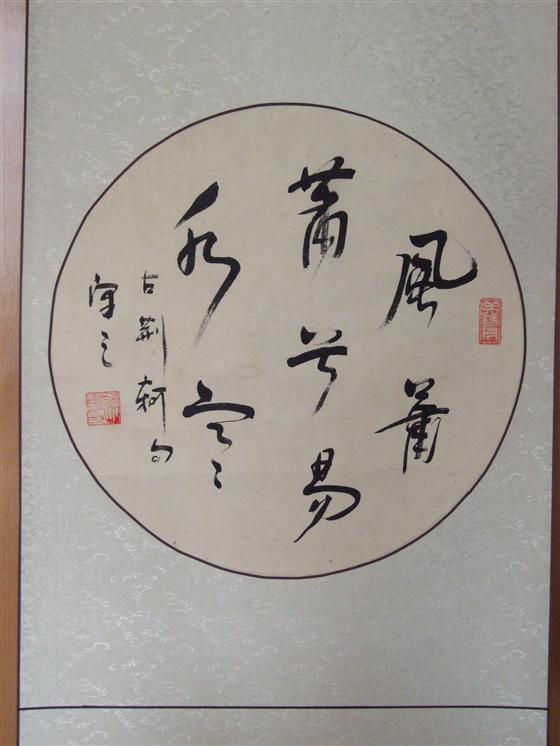 風蕭
蕭兮易
水寒
古荊軻句
守之